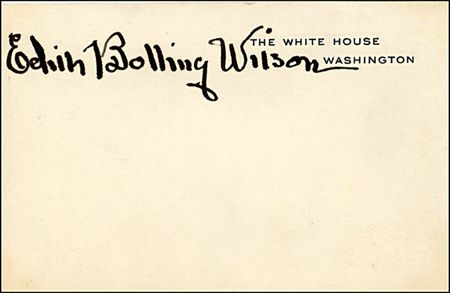 Edith Bolling Wilson
THE WHITE HOUSE
WASHINGTON